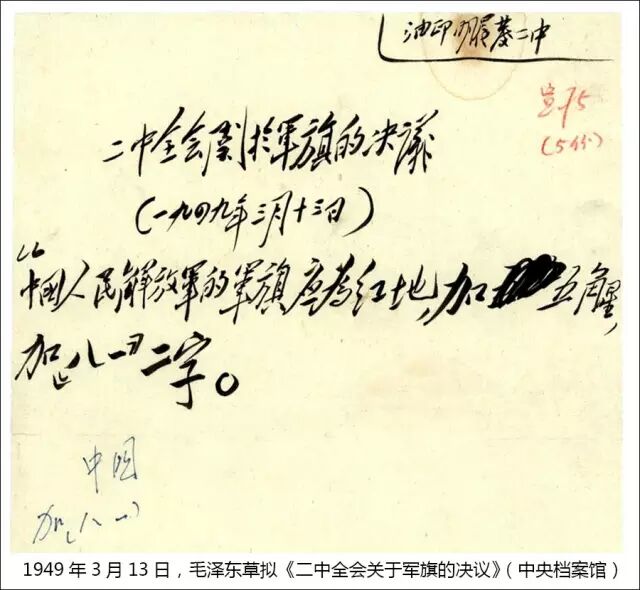 油印 二中
(5份)
二中全会関於軍旗的决議
(一九四九年三月十三日)
“中國人民解放軍的軍旗应為红地，加五角星，
加『八一』二字。
中国
加『八一』
1949年3月13日，毛泽东草拟《二中全会关于军旗的决议》（中央档案馆）